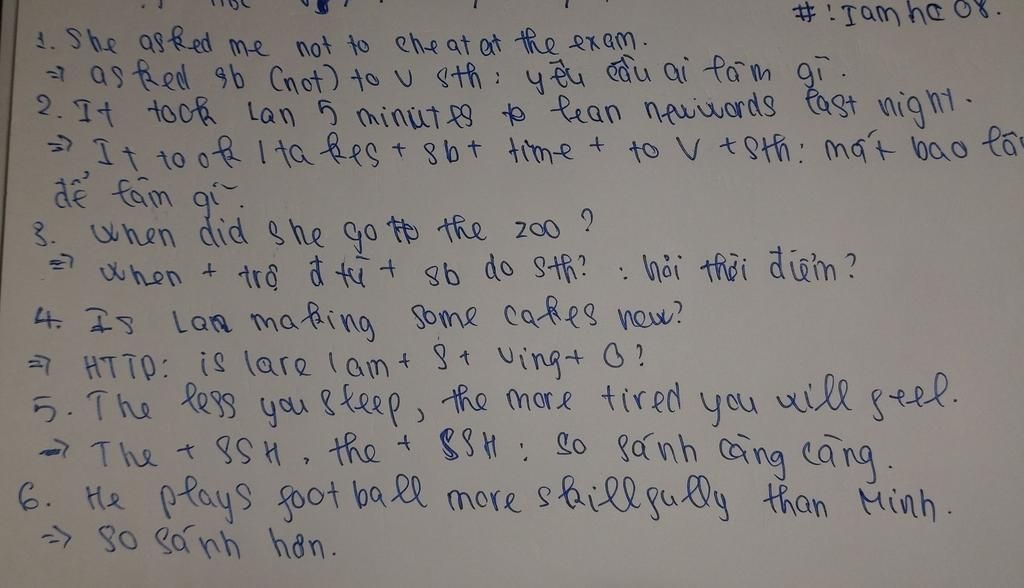 #: Iamhc08.
1. She asked me not to cheat at the exam.
=> asked sb (not) to V sth: yêu cầu ai làm gì.
2. It took Lan 5 minutes to lean newwords last night.
=> It took / takes + sb + time + to V + sth: mất bao lâ
để làm gì.
3. When did she go to the zoo?
=> When + trợ đ từ + sb do sth? : hỏi thời điểm?
4. Is Lan making some cakes new?
=> HTTD: is / are / am + S + Ving + O?
5. The less you sleep, the more tired you will feel.
=> The + SSH, the + SSH: so sánh càng càng.
6. He plays football more skillfully than Minh.
=> so sánh hơn.